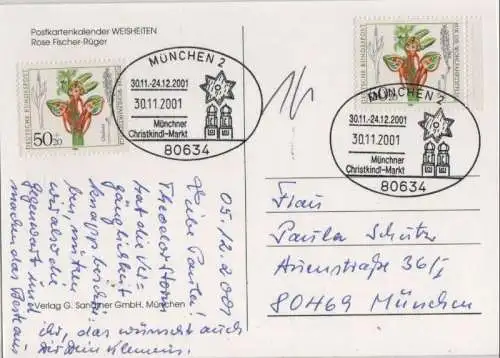 Postkartenkalender WEISHEITEN
Rose Fischer-Rüger
MÜNCHEN 2
30.11.-24.12.2001
30.11.2001
Münchner
Christkindl-Markt
80634
DEUTSCHE BUNDESPOST
50+20
MÜNCHEN 2
30.11.-24.12.2001
30.11.2001
Münchner
Christkindl-Markt
80634
DEUTSCHE BUNDESPOST
05.12.2001
Liebe Paula!
Theodor Storm
hat die Ver-
gänglichkeit
knapp beschrie-
ben, nutzen
wir also die
Gegenwart und
machen das Beste aus
ihr, das wünscht auch
Dir Dein Klemens.
Verlag G. Sandner GmbH, München
Frau
Paula Schütz
Auenstraße 36/I
80469 München